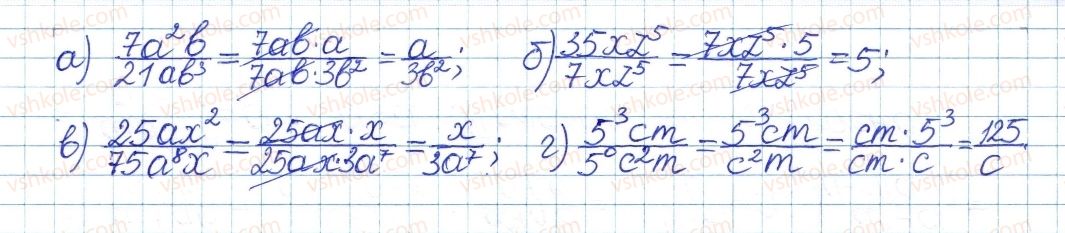 а) 7a²b/21ab³ = 7ab·a/7ab·3b² = a/3b²; б) 35xz⁵/7xz⁵ = 7xz⁵·5/7xz⁵ = 5;
в) 25ax²/75a⁸x = 25ax·x/25ax·3a⁷ = x/3a⁷; г) 5³cm/5⁰c²m = 5³cm/c²m = cm·5³/cm·c = 125/c.